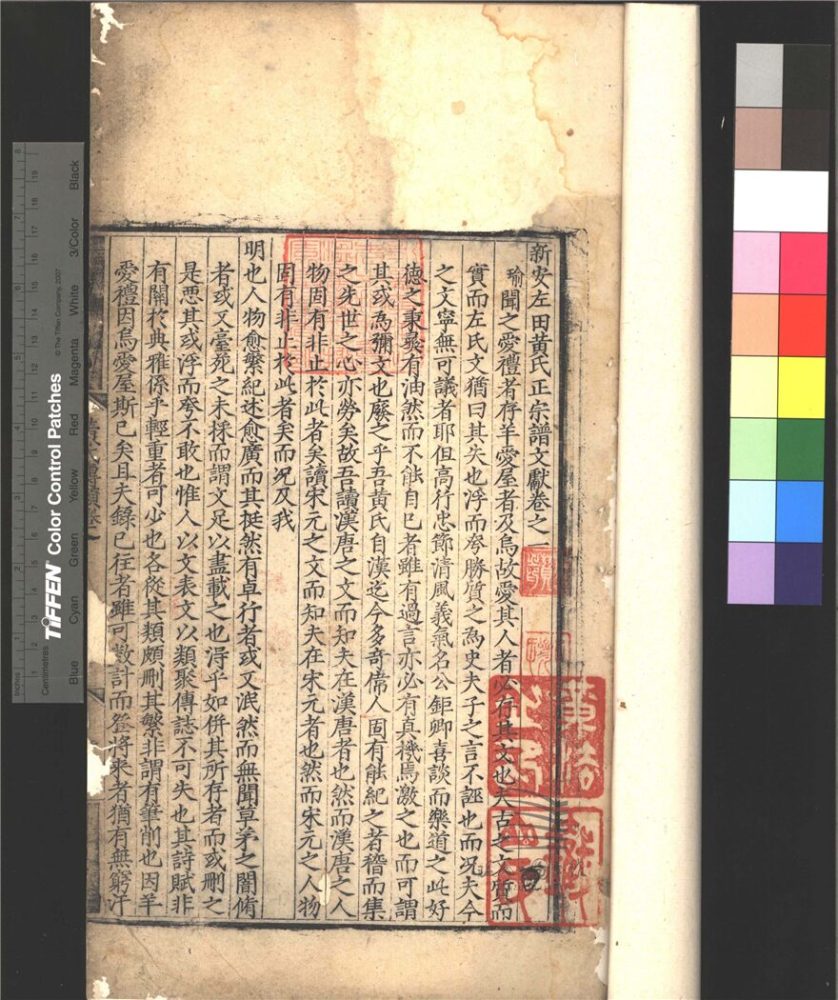 新安左田黃氏正宗譜文獻卷之一
瑜聞之愛禮者存羊愛屋者及烏故愛其人者必存其文也夫古之文質而
實而左氏文猶曰其失也浮而夸勝質之為史夫子之言不誣也而况夫今
之文寧無可議者耶但高行忠節清風義氣名公鉅卿喜談而樂道之此好
德之秉彛有油然而不能自已者雖有過言亦必有真機焉激之也而可謂
其或為彌文也廢之乎吾黃氏自漢迄今多奇偉人固有能紀之者稽而集
之先世之心亦勞矣故吾讀漢唐之文而知夫在漢唐者也然而漢唐之人
物固有非止於此者矣讀宋元之文而知夫在宋元者也然而宋元之人物
固有非止於此者矣而况及我
明也人物愈繁紀述愈廣而其挺然有卓行者或又泯然而無聞草茅之闇脩
者或又臺苑之未採而謂文足以盡載之也淂乎如併其所存者而或刪之
是惡其或浮而夸不敢也惟人以文表文以類聚傳誌不可失也其詩賦非
有關於典雅係乎輕重者可少也各從其類頗刪其繁非謂有筆削也因羊
愛禮因烏愛屋斯已矣且夫錄已徃者雖可数計而登將來者猶有無窮汙
TIFFEN Color Control Patches
© The Tiffen Company, 2007
Inches
Centimetres
Blue Cyan Green Yellow Red Magenta White 3/Color Black